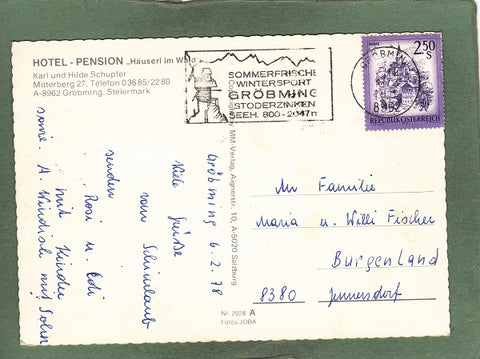 HOTEL - PENSION „Häuserl im Wald
Karl und Hilde Schupfer
Mitterberg 27, Telefon 03685/2280
A-8962 Gröbming, Steiermark
SOMMERFRISCHE
WINTERSPORT
GRÖBMING
STODERZINKEN
SEEH. 800 - 2047m
GRÖBMING
8962
2.50
S
REPUBLIK ÖSTERREICH
Gröbming 6.2.78
Viele Grüße
vom Schiurlaub
senden
Rosi u. Edi
mit Kinder
sowie A. Windisch mit Sohn
MM-Verlag, Aignerstr. 10, A-5020 Salzburg
An Familie
Maria u. Willi Fischer
Burgenland
8380 Jennersdorf
Nr. 2026 A
Fotos JOBA